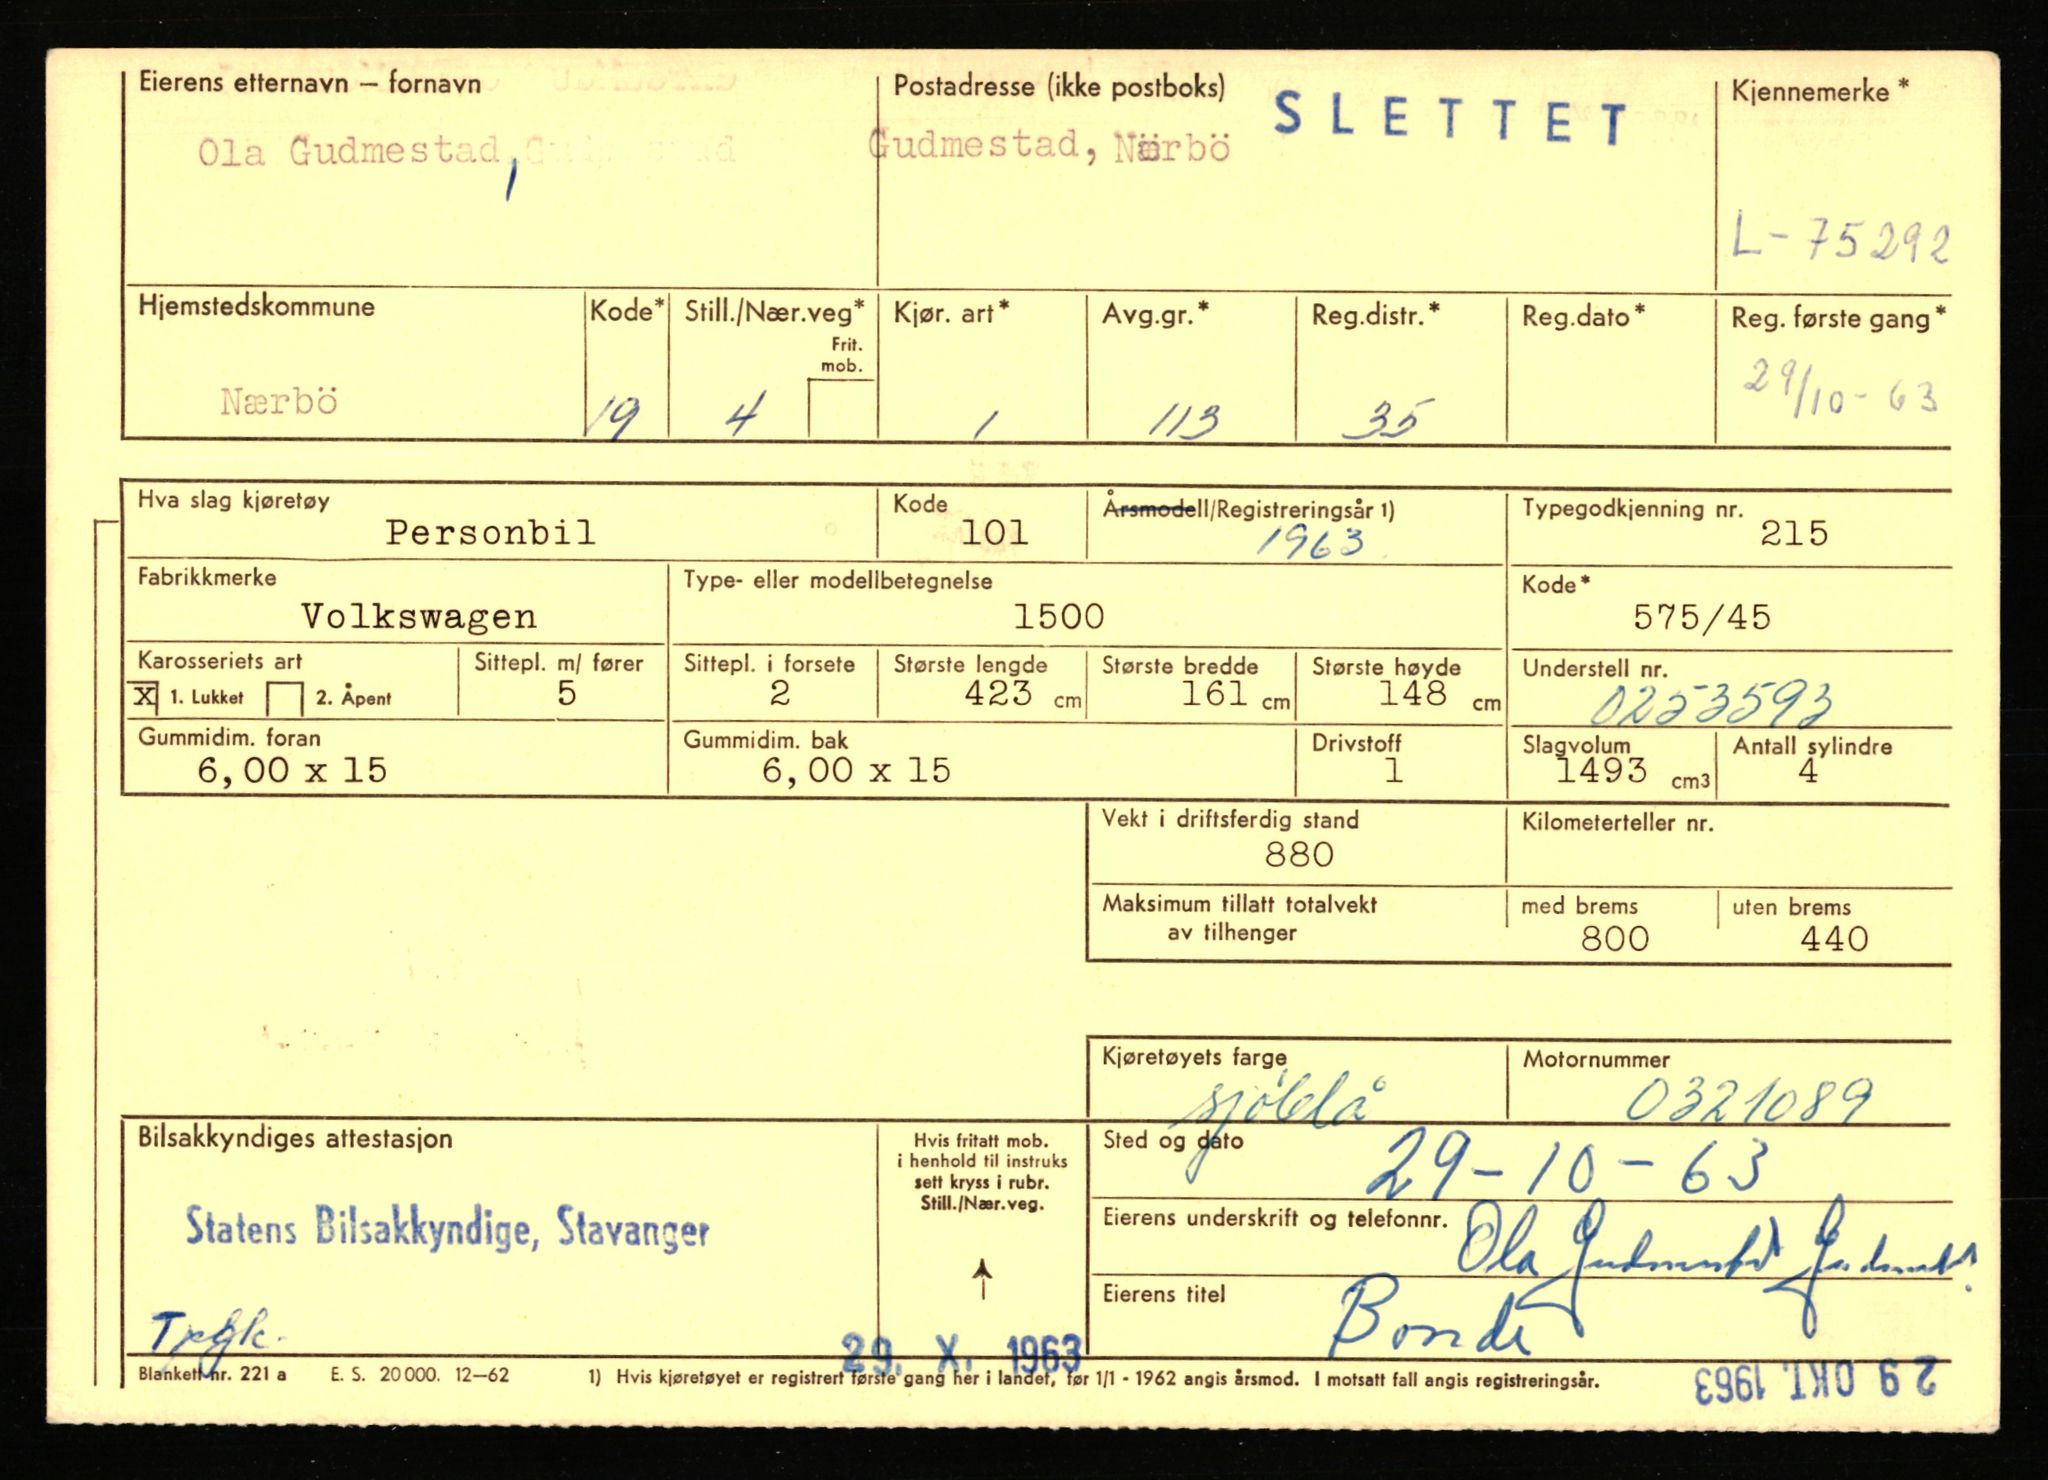 Eierens etternavn – fornavn
Postadresse (ikke postboks)
SLETTET
Kjennemerke *
Ola Gudmestad,
Gudmestad, Nærbö
L-75292
Hjemstedskommune
Kode*
Still./Nær.veg*
Frit.
mob.
Kjør. art*
Avg.gr.*
Reg.distr.*
Reg.dato*
Reg. første gang*
Nærbö
19
4
1
113
35
29/10-63
Hva slag kjøretøy
Personbil
Kode
101
Årsmodell/Registreringsår 1)
1963
Typegodkjenning nr.
215
Fabrikkmerke
Volkswagen
Type- eller modellbetegnelse
1500
Kode*
575/45
Karosseriets art
x 1. Lukket 2. Åpent
Sittepl. m/ fører
5
Sittepl. i forsete
2
Største lengde
423 cm
Største bredde
161 cm
Største høyde
148 cm
Understell nr.
0253593
Gummidim. foran
6,00 x 15
Gummidim. bak
6,00 x 15
Drivstoff
1
Slagvolum
1493 cm3
Antall sylindre
4
Vekt i driftsferdig stand
880
Kilometerteller nr.
Maksimum tillatt totalvekt
av tilhenger
med brems
800
uten brems
440
Kjøretøyets farge
sjöblå
Motornummer
0321089
Bilsakkyndiges attestasjon
Statens Bilsakkyndige, Stavanger
Hvis fritatt mob.
i henhold til instruks
sett kryss i rubr.
Still./Nær.veg.
Sted og dato
29-10-63
Eierens underskrift og telefonnr.
Ola Gudmestad
Eierens titel
Bonde
29. X. 1963
29 OKT. 1963
Blankett nr. 221 a E. S. 20 000. 12–62
1) Hvis kjøretøyet er registrert første gang her i landet, før 1/1 - 1962 angis årsmod. I motsatt fall angis registreringsår.